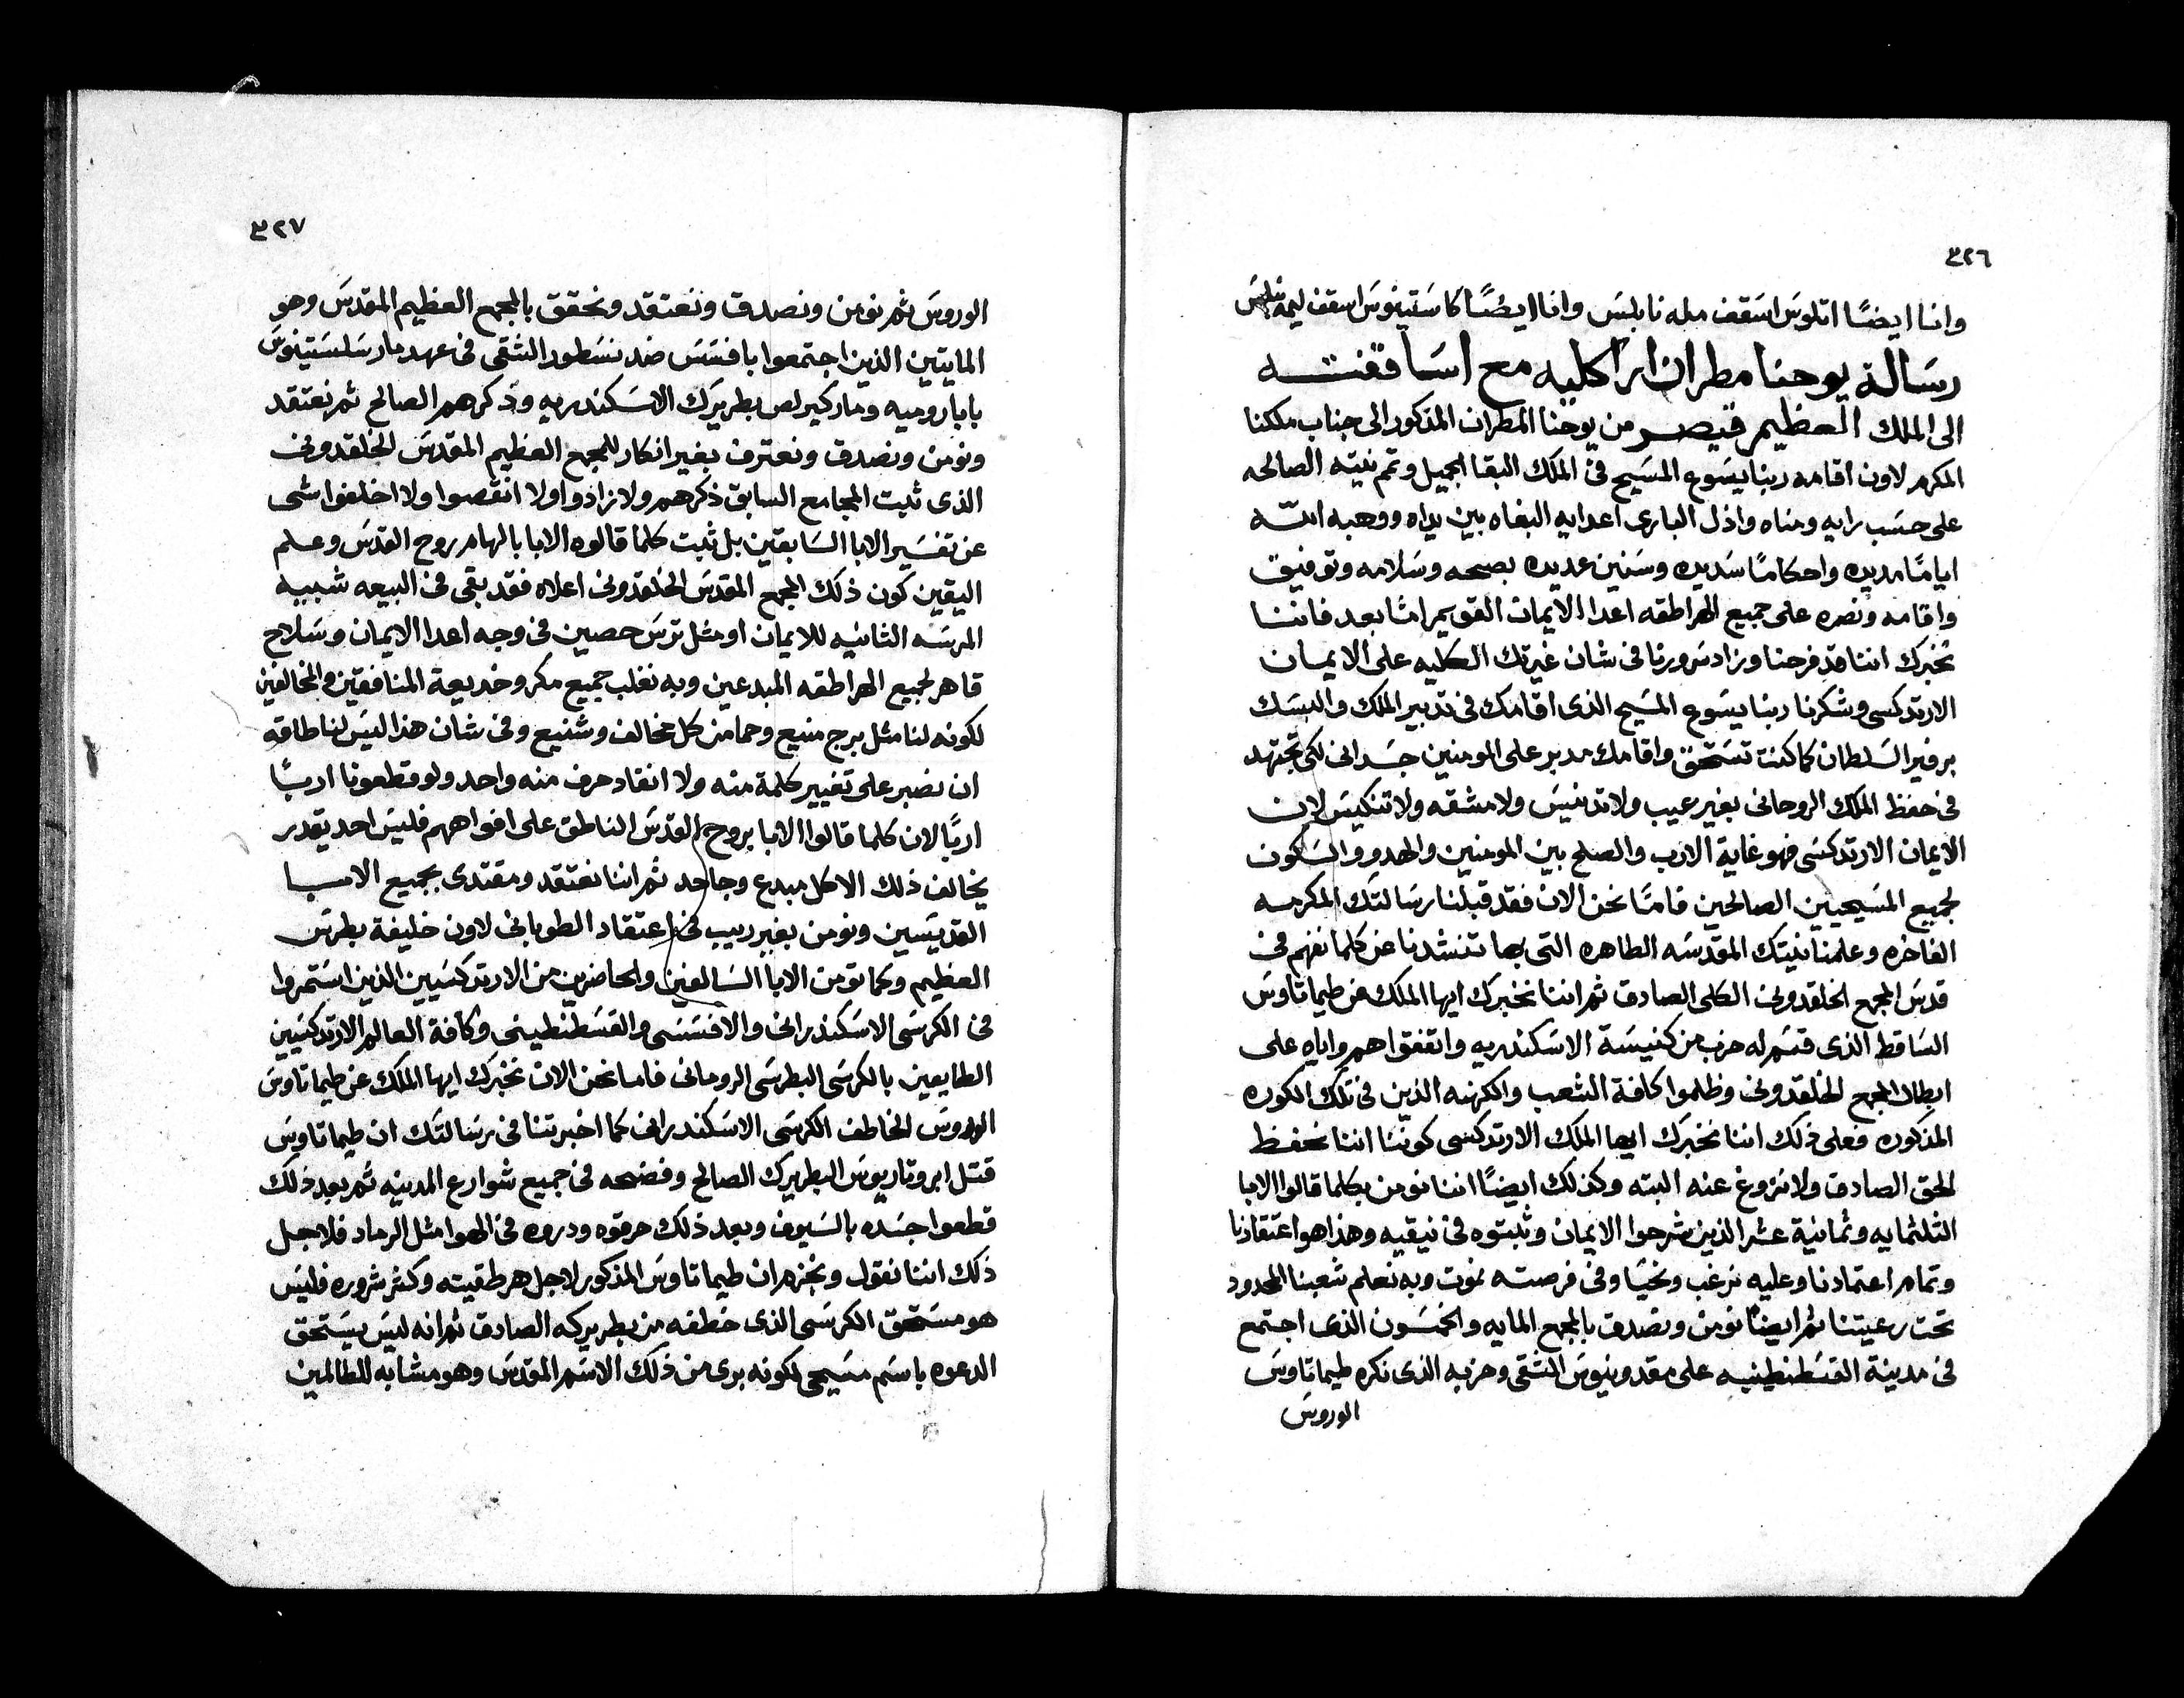 ٣٢٦
وانا ايضًا اتلوس اسقف مله نابلس وانا ايضًا كاستينوس اسقف ليمه
رسالة يوحنا مطران اراكليه مع اساقفته
الى الملك العظيم قيصر من يوحنا المطران المذكور الى جناب ملكنا
المكرم لاون اقامه ربنا يسوع المسيح فى الملك البقا الجميل وتم نيته الصالحه
على حسب رايه ومناه واذل البارى اعدايه البغاه بين يداه ووهبه الله
ايامًا مديده واحكامًا سديده وسنين عديده بصحه وسلامه وتوفيق
واقامه ونصره على جميع الهراطقه اعدا الايمان القويم امّا بعد فاننا
نخبرك اننا قد فرحنا وزاد سرورنا فى شان غيرتك الكليه على الايمان
الارتدكسى وشكرنا ربنا يسوع المسيح الذى اقامك فى تدبير الملك والبسك
برفير السلطان كما كنت تستحق واقامك مدبر على المومنين جسدانى لكى تجتهد
فى حفظ الملك الروحانى بغير عيب ولا تدنيس ولا مشقه ولا تنكيس لان
الايمان الارتدكسى فهو غاية الارب والصلح بين المومنين والهدوو والسكون
لجميع المسيحيين الصالحين فامّا نحن الان فقد قبلنا رسالتك المكرمه
الفاخره وعلمنا نيتك المقدسه الطاهره التى بها تنشدنا عن كلما نفهم فى
قدس المجمع الخلقدونى الكلى الصادق ثم اننا نخبرك ايها الملك عن طيماتاوس
الساقط الذى قسم له حزب من كنيسة الاسكندريه واتفقوا هم واياه على
ابطال المجمع الخلقدونى وظلموا كافة الشعب والكهنه الذين فى تلك الكوره
المذكوره فعلى ذلك اننا نخبرك ايها الملك الارتدكسى كوننا اننا نحفظ
الحق الصادق ولا نزوغ عنه البته وكذلك ايضًا اننا نومن بكلما قالوا الابا
الثلثمايه وثمانية عشر الذين شرحوا الايمان وثبتوه فى نيقيه وهذا هو اعتقادنا
وتمام اعتمادنا وعليه نرغب ونحيا وفى فرصته نموت وبه نعلم شعبنا المحدود
تحت رعيتنا ثم ايضًا نومن ونصدق بالمجمع المايه والخمسون الذى اجتمع
فى مدينة القسطنطينيه على مقدونيوس الشقى وحزبه الذى نكره طيماتاوس
الوروس
٣٢٧
الوروس ثم نومن ونصدق ونعتقد ونحقق بالمجمع العظيم المقدس وهو
المايتين الذين اجتمعوا بافسس ضد نسطور الشقى فى عهد مار سلستينوس
بابا روميه ومار كيرلص بطريرك الاسكندريه وذكرهم الصالح ثم نعتقد
ونومن ونصدق ونعترف بغير انكار للمجمع العظيم المقدس الخلقدونى
الذى ثبت المجامع السابق ذكرهم ولا زادوا ولا انقصوا ولا اختلفوا شى
عن تفسير الابا السابقين بل ثبت كلما قالوه الابا بالهام روح القدس وعلم
اليقين كون ذلك المجمع المقدس الخلقدونى اعلاه فقد بقى فى البيعه شبيه
المرسه الثانيه للايمان او مثل ترس حصين فى وجه اعدا الايمان وسلاح
قاهر لجميع الهراطقه المبدعين وبه نغلب جميع مكر وخديعة المنافقين والمخالفين
لكونه لنا مثل برج منيع وحما من كل مخالف وشنيع وفى شان هذا ليس لنا طاقه
ان نصبر على تغيير كلمة منه ولا انقاد حرف منه واحد ولو قطعونا اربًا
اربًا لان كلما قالوا الابا بروح القدس الناطق على افواههم فليس احد يقدر
يخالف ذلك الا كل مبدع وجاحد ثم اننا نعتقد ومقتدى بجميع الابا
القديسين ونومن بغير ريب فى اعتقاد الطوبانى لاون خليفة بطرس
العظيم وكما تومن الابا السالفين والحاضرين من الارتدكسيين الذين استمروا
فى الكرسى الاسكندرانى والافسسى والقسطنطينى وكافة العالم الارتدكسيين
الطايعين بالكرسى البطرسى الرومانى فاما نحن الان نخبرك ايها الملك عن طيماتاوس
الوروس الخاطف الكرسى الاسكندرانى كما اخبرتنا فى رسالتك ان طيماتاوس
قتل ابروتاريوس البطريرك الصالح وفضحه فى جميع شوارع المدينه ثم بعد ذلك
قطعوا جسده بالسيوف وبعد ذلك حرقوه ودروه فى الهوا مثل الرماد فلاجل
ذلك اننا نقول ونجزم ان طيماتاوس المذكور لاجل هرطقيته وكثر شروره فليس
هو مستحق الكرسى الذى خطفه من بطريركه الصادق ثم انه ليس يستحق
الدعوه باسم مسيحى لكونه برى من ذلك الاسم المقدس وهو مشابه للظالمين